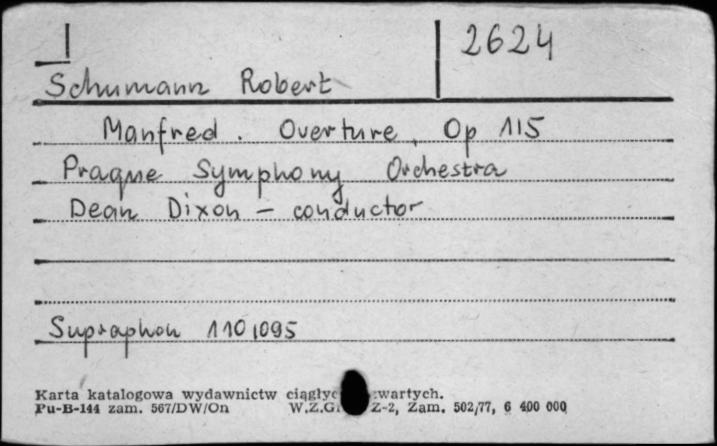 2624
Schumann Robert
Manfred. Overture, Op 115
Prague Symphony Orchestra
Dean Dixon - conductor
Supraphon 1101095
Karta katalogowa wydawnictw
Pu-B-144 zam. 567/DW/On W.Z.G Z-2, Zam. 502/77, 6 400 000